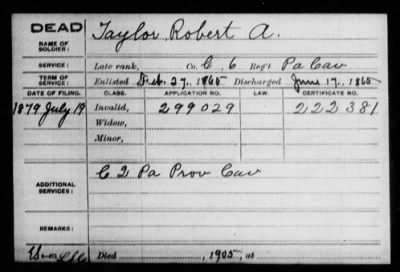 DEAD
NAME OF SOLDIER: Taylor, Robert A.
SERVICE: Late rank, Co. C, 6 Reg't Pa Cav
TERM OF SERVICE: Enlisted Feb. 27, 1865 Discharged June 17, 1865
DATE OF FILING. CLASS. APPLICATION NO. LAW. CERTIFICATE NO.
1879 July 19 Invalid, 299029 222381
Widow,
Minor,
ADDITIONAL SERVICES: C 2 Pa Prov Cav
REMARKS:
Died , 1905, at